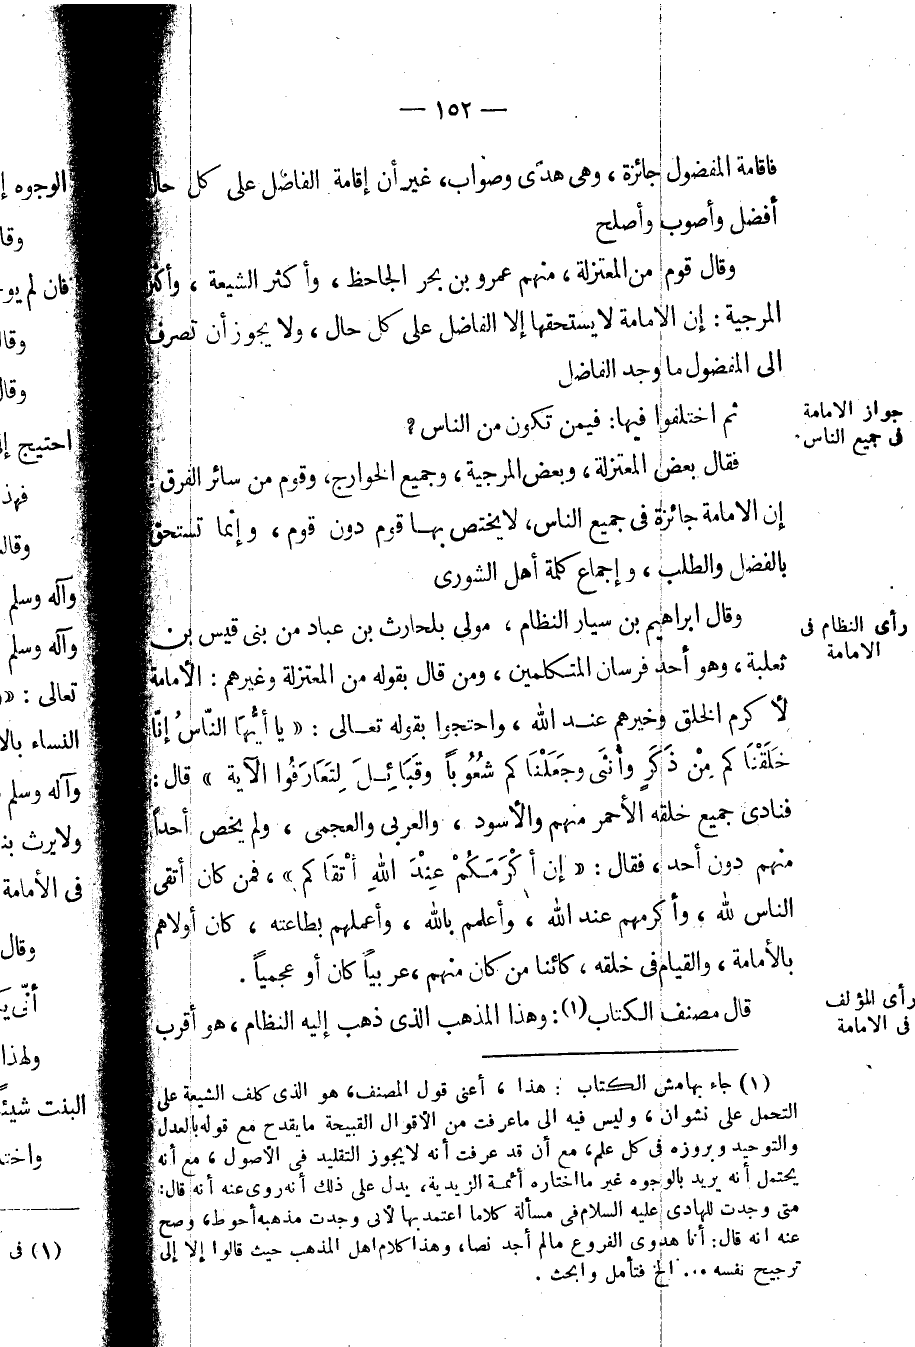 — ١٥٢ —
فاقامة المفضول جائزة ، وهى هدًى وصواب، غير أن إقامة الفاضل على كل حال
أفضل وأصوب وأصلح
وقال قوم من المعتزلة ، منهم عمرو بن بحر الجاحظ ، وأكثر الشيعة ، وأكثر
المرجية : إن الامامة لا يستحقها إلا الفاضل على كل حال ، ولا يجوز أن تصرف
الى المفضول ما وجد الفاضل
جواز الامامة
فى جميع الناس
ثم اختلفوا فيها: فيمن تكون من الناس ؟
فقال بعض المعتزلة ، وبعض المرجية ، وجميع الخوارج، وقوم من سائر الفرق :
إن الامامة جائزة فى جميع الناس، لا يختص بهـا قوم دون قوم ، وإنما تستحق
بالفضل والطلب ، وإجماع كلمة أهل الشورى
رأى النظام فى
الامامة
وقال ابراهيم بن سيار النظام ، مولى بلحارث بن عباد من بنى قيس بن
ثعلبة ، وهو أحد فرسان المتكلمين ، ومن قال بقوله من المعتزلة وغيرهم : الأمامة
لأكرم الخلق وخيرهم عنـد الله ، واحتجوا بقوله تعـالى : « يا أَيُّهَا النَّاسُ إِنَّا
خَلَقْنَاكم مِنْ ذَكَرٍ وأُنثَى وجَعَلْنَاكم شعُوُباً وقَبَائِـلَ لِتعَارَفُوا الآية » قال :
فنادى جميع خلقه الأحمر منهم والأسود ، والعربى والعجمى ، ولم يخص أحداً
منهم دون أحد ، فقال : « إن أكْرَمَكُمْ عِنْدَ اللهِ أتْقَاكم » ، فمن كان أتقى
الناس لله ، وأكرمهم عند الله ، وأعلمهم بالله ، وأعملهم بطاعته ، كان أولاهم
بالأمامة ، والقيام فى خلقه ، كائنا من كان منهم ، عربياً كان أو عجمياً .
رأى المؤلف
فى الامامة
قال مصنف الكتاب(١): وهذا المذهب الذى ذهب إليه النظام ، هو أقرب
(١) جاء بهامش الكتاب : هذا ، أعنى قول المصنف، هو الذى كلف الشيعة على
التحمل على نشوان ، وليس فيه الى ماعرفت من الأقوال القبيحة مايقدح مع قوله بالعدل
والتوحيد وبروزه فى كل علم، مع أن قد عرفت أنه لايجوز التقليد فى الأصول ، مع أنه
يحتمل أنه يريد بالوجوه غير ما اختاره أئمة الزيدية، يدل على ذلك أنه روى عنه أنه قال:
متى وجدت للهادى عليه السلام فى مسألة كلاما اعتمد بها لأنى وجدت مذهبه أحوط، وصح
عنه انه قال: أنا هدوى الفروع مالم أجد نصا، وهذا كلام اهل المذهب حيث قالوا إلا إلى
ترجيح نفسه ... الخ فتأمل وابحث .
الوجوه
فان لم
وقال
احتيج
فهذ
وآله وسلم
وآله وسلم
تعالى : «
النساء
وآله وسلم
ولايرث
فى الأمامة
وقال
ولهذا
البنت
(١) فى